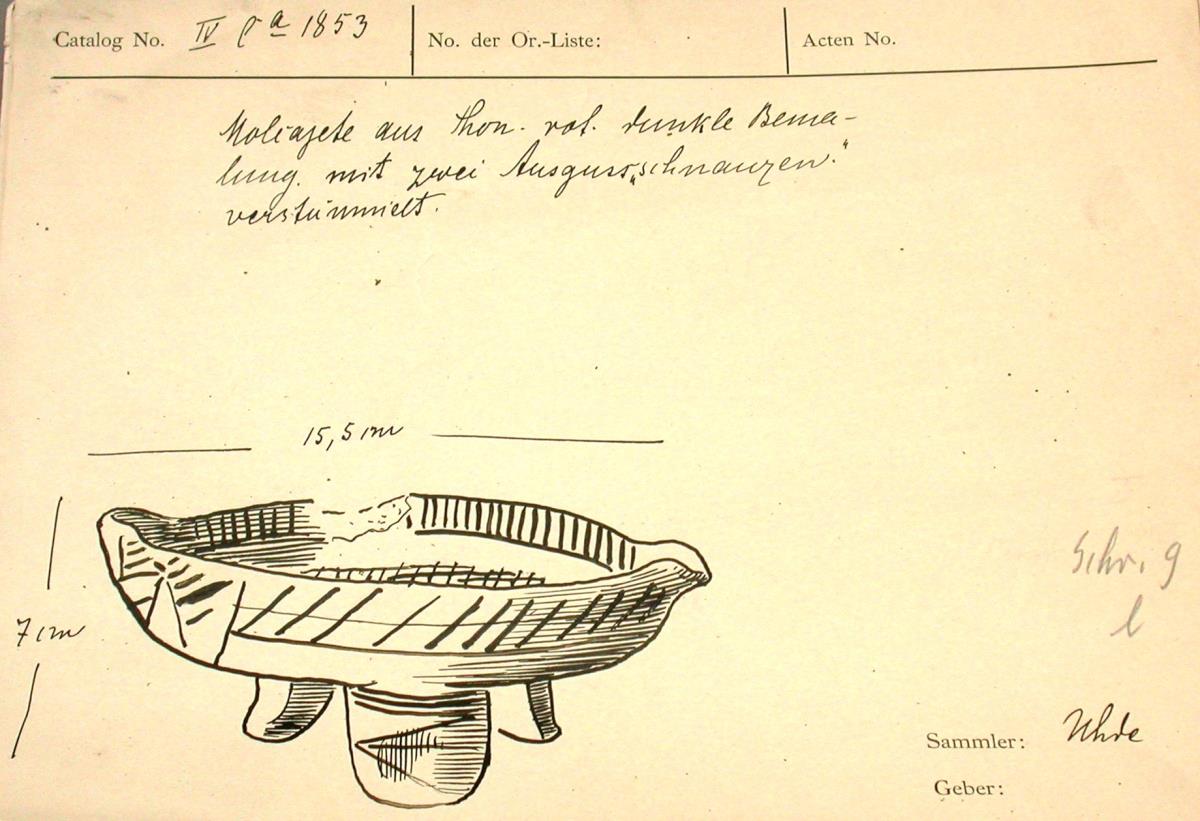 Catalog No. IV Ca 1853
No. der Or.-Liste:
Acten No.
Molcajete aus Thon. rot. dunkle Bema-
lung. mit zwei Ausguss„schnauzen.“
verstümmelt.
15,5 cm
7 cm
Schr. 9
l
Sammler: Uhde
Geber: